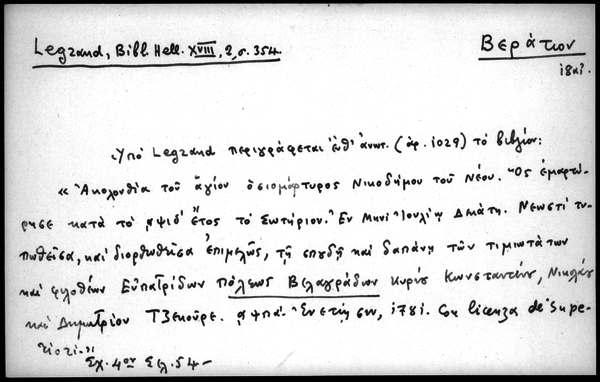 Legrand, Bibl. Hell. XVIII, 2, σ. 354.
Βεράτιον
ἰδαί.
Ὑπό Legrand περιγράφεται ἐνθ' ἀνωτ. (ἀρ. 1029) τό βιβλίον:
« Ἀκολουθία τοῦ ἁγίου ὁσιομάρτυρος Νικοδήμου τοῦ Νέου. Ὅς ἐμαρτύ-
ρησε κατά τό αψιδ' ἔτος τό Σωτήριον. Ἐν Μηνί Ἰουλίῳ Δεκάτῃ. Νεωστί τυ-
πωθεῖσα, καί διορθωθεῖσα ἐπιμελῶς, τῇ σπουδῇ καί δαπάνῃ τῶν τιμιωτάτων
καί φιλοθέων Εὐπατρίδων Πόλεως Βελαγράδων Κυρίου Κωνσταντίνου, Νικολάου
καί Δημητρίου Τζεκούρε. αψπα'. Ἐνετίησιν, 1781. Con licenza de' Supe-
riori.»
Σχ. 4ον Σελ. 54 –